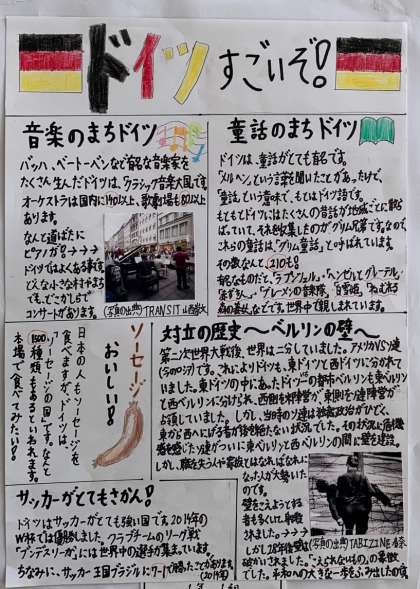 ドイツすごいぞ!
音楽のまちドイツ
バッハ、ベートーベンなど有名な音楽家を
たくさん生んだドイツは、クラシック音楽大国です。
オーケストラは国内に140以上、歌劇場も80以上が
あります。
なんと道ばたに
ピアノが!→→→
ドイツではよくある事です。
どんな小さな村やまち
でも、どこかしらで
コンサートがあります。
(写真の出典)TRANSIT
童話のまちドイツ
ドイツは、童話がとても有名です。
「メルヘン」という言葉を聞いたことがあったけで、
「童話」という意味で、もとはドイツ語です。
もともとドイツにはたくさんの昔話が地域ごとに散
らばっていて、それを収集したのがグリム兄弟です。なので、
これらの童話は「グリム童話」と呼ばれています。
その数なんと、210も!
有名なものだと、「ラプンツェル」、「ヘンゼルとグレーテル」
「ブレーメンの音楽隊」「白雪姫」、「ねむれる
森の美女」、などです。世界中で親しまれています。
ソーセージ
おいしい!
日本の人もソーセージを
食べますが、ドイツは、
「ソーセージの国」です。なんと
1500種類もあるといわれます。
本場で食べてみたい!
対立の歴史〜ベルリンの壁〜
第二次世界大戦後、世界は二分していました。アメリカVSソ連
(今のロシア)です。これによりドイツも、東ドイツと西ドイツに分かれて
いました。東ドイツの中にあったドイツの都市ベルリンも東ベルリン
と西ベルリンに分けられ、西側を米軍、東側をソ連陣営が
占領していました。しかし、当時のソ連は独裁政治がひどく、
東から西へにげる者が後を絶たない状況でした。その状況に危機
感を感じたソ連がついに東ベルリンと西ベルリンの間に壁を建設。
しかし、職を失う人や家族とはなればなれに
なった人が大勢いた
のです。
壁をこえようとする
者も多くいて、射殺
されました。→→→
しかし28年後壁は
(写真の出典)TABIZINE
破かいされました。「こえられないもの」の象徴
でした。平和への大きな一歩をふみ出したの
サッカーがとてもさかん!
ドイツはサッカーがとても強い国です。2014年の
W杯では優勝しました。クラブチームのリーグ戦
「ブンデスリーガ」には世界中の選手が集まっています。
ちなみに、サッカー王国ブラジルに7-1で勝ったことがあります。
(2014年)